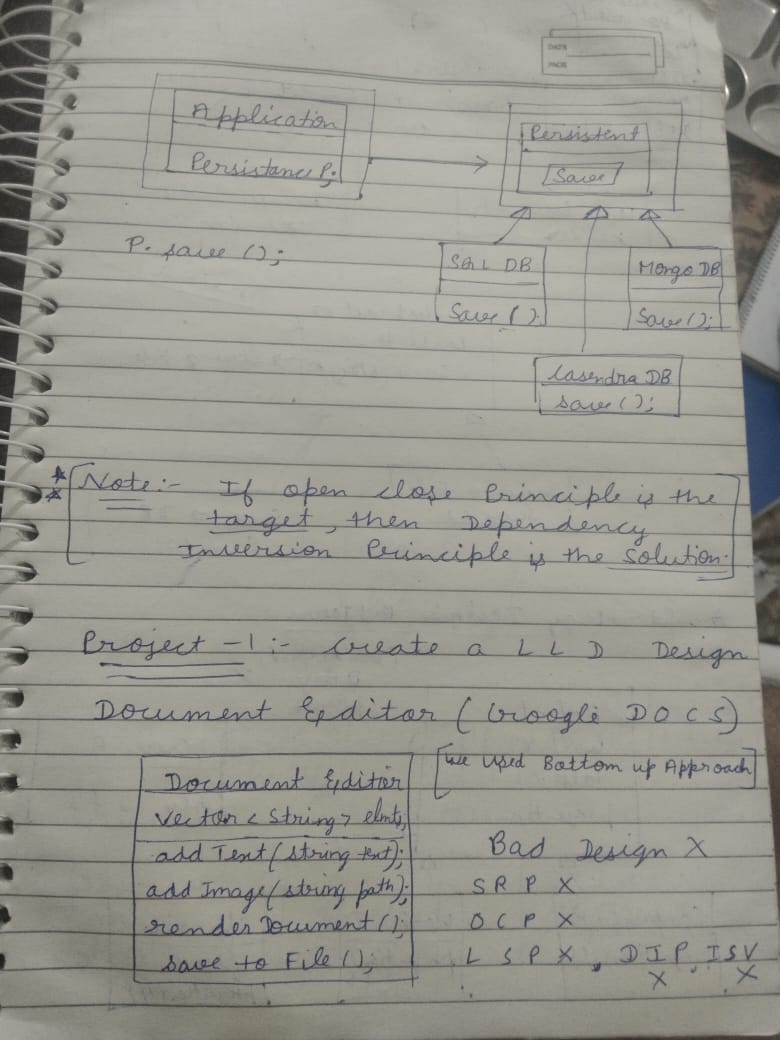 DATE
PAGE
Application
Persistance P;
Persistent
Save
P. save ();
SQL DB
Save ();
Mongo DB
Save ();
Casendra DB
save ();
Note:- If open close Principle is the
target, then Dependency
Inversion Principle is the solution.
Project -1:- Create a LLD Design
Document Editor (Google DOCS)
[We Used Bottom up Approach]
Document Editor
Vector < String > elmts;
add Text (string text);
add Image (string path);
render Document ();
save to File ();
Bad Design X
SRP X
OCP X
LSP X, DIP, ISV
X X